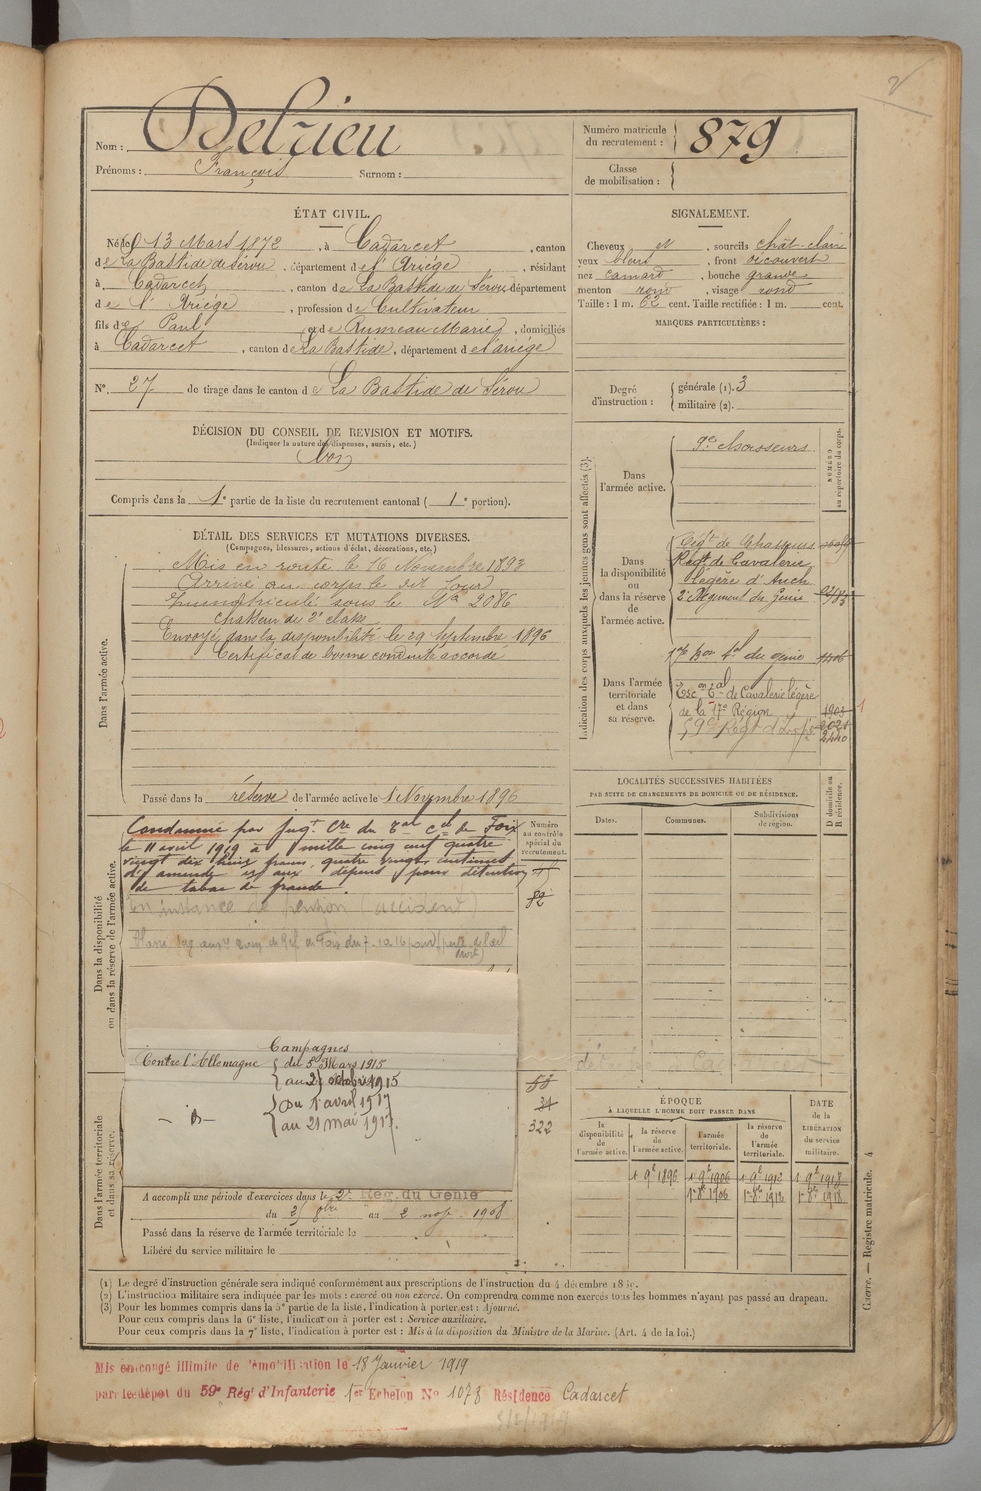 2
Nom : Delrieu
Prénoms : François Surnom :
Numéro matricule du recrutement : 879
Classe de mobilisation :
ÉTAT CIVIL.
Né le 13 Mars 1872, à Cadarcet, canton
de La Bastide de Sérou, département de l'Ariège, résidant
à Cadarcet, canton de La Bastide de Sérou département
de l'Ariège, profession de Cultivateur
fils de Paul et de Marie, domiciliés
à Cadarcet, canton de La Bastide, département de l'ariège
N°. 27 de tirage dans le canton de La Bastide de Sérou
DÉCISION DU CONSEIL DE REVISION ET MOTIFS.
(Indiquer la nature des dispenses, sursis, etc.)
Bon
Compris dans la 1e partie de la liste du recrutement cantonal ( 1e portion).
DÉTAIL DES SERVICES ET MUTATIONS DIVERSES.
(Campagnes, blessures, actions d'éclat, décorations, etc.)
Dans l'armée active.
Mis en route le 16 Novembre 1893
Arrivé au corps le dit jour
Immatriculé sous le No 2086
chasseur de 2e classe
Envoyé dans la disponibilité le 29 Septembre 1896
Certificat de bonne conduite accordé
Passé dans la réserve de l'armée active le 1 Novembre 1896
SIGNALEMENT.
Cheveux et, sourcils chât-clair
yeux bleus, front découvert
nez camard, bouche grande
menton rond, visage rond
Taille : 1 m. 62 cent. Taille rectifiée : 1 m. cent.
MARQUES PARTICULIÈRES :
Degré d'instruction : générale (1). 3
militaire (2).
Indication des corps auxquels les jeunes gens sont affectés (3).
NUMÉRO au répertoire du corps.
Dans l'armée active.
9e Chasseurs
Dans la disponibilité ou dans la réserve de l'armée active.
Régt de Chasseurs
Régt de Cavalerie
légère d'Auch
2e Régiment du Génie
Dans l'armée territoriale et dans sa réserve.
17e Bon tal du génie
Escon Tal de Cavalerie légère
de la 17e Région 1903
59e Regt d'Infie 2021
2440
1
LOCALITÉS SUCCESSIVES HABITÉES
PAR SUITE DE CHANGEMENTS DE DOMICILE OU DE RÉSIDENCE.
Dates. Communes. Subdivisions de région. D domicile ou R résidence.
Dans la disponibilité ou dans la réserve de l'armée active.
Numéro au contrôle spécial du recrutement.
Condamné par jugt cre du Tal cel de Foix
le 11 avril 1919 à mille cinq cent quatre
vingt dix huit francs, quatre vingts centimes
d'amende et aux dépens pour détention
de tabac de fraude.
82
En instance de pension (accident)
Campagnes
Contre l'Allemagne du 5 Mars 1915
au 2 octobre 1915
- d° - Du 1 avril 1917
au 21 mai 1917.
58
31
322
Dans l'armée territoriale et dans sa réserve.
A accompli une période d'exercices dans le 2e Reg. du Génie
du au 2 nov. 1908
Passé dans la réserve de l'armée territoriale le
Libéré du service militaire le
ÉPOQUE
À LAQUELLE L'HOMME DOIT PASSER DANS
la disponibilité de l'armée active. la réserve de l'armée active. l'armée territoriale. la réserve de l'armée territoriale. DATE de la LIBÉRATION du service militaire.
1 9b 1896 1 9b 1906 1 9b 1912 1 9b 1918
1er 8bre 1906 1er 8bre 1912 1er 8bre 1918
(1) Le degré d'instruction générale sera indiqué conformément aux prescriptions de l'instruction du 4 décembre 18
(2) L'instruction militaire sera indiquée par les mots : exercé ou non exercé. On comprendra comme non exercés tous les hommes n'ayant pas passé au drapeau.
(3) Pour les hommes compris dans la 5e partie de la liste, l'indication à porter est : Ajourné.
Pour ceux compris dans la 6e liste, l'indication à porter est : Service auxiliaire.
Pour ceux compris dans la 7e liste, l'indication à porter est : Mis à la disposition du Ministre de la Marine. (Art. 4 de la loi.)
Guerre. — Registre matricule. 4
Mis en congé illimité de démobilisation le 18 Janvier 1919
par le dépot du 59e Régt d'Infanterie 1er Echelon No 1078 Résidence Cadarcet